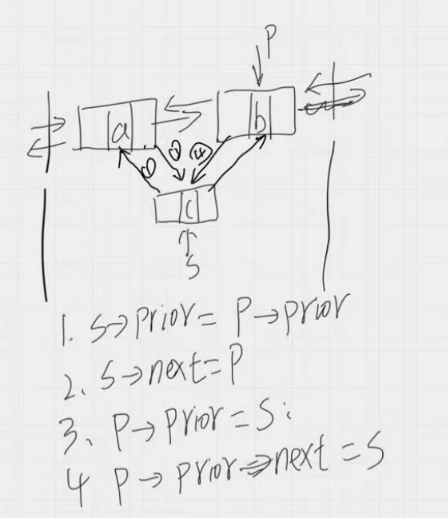 P
a
b
① ② ④
c
S
1. S→prior = P→prior
2. S→next=P
3. P→prior=S;
4 P→prior→next=S